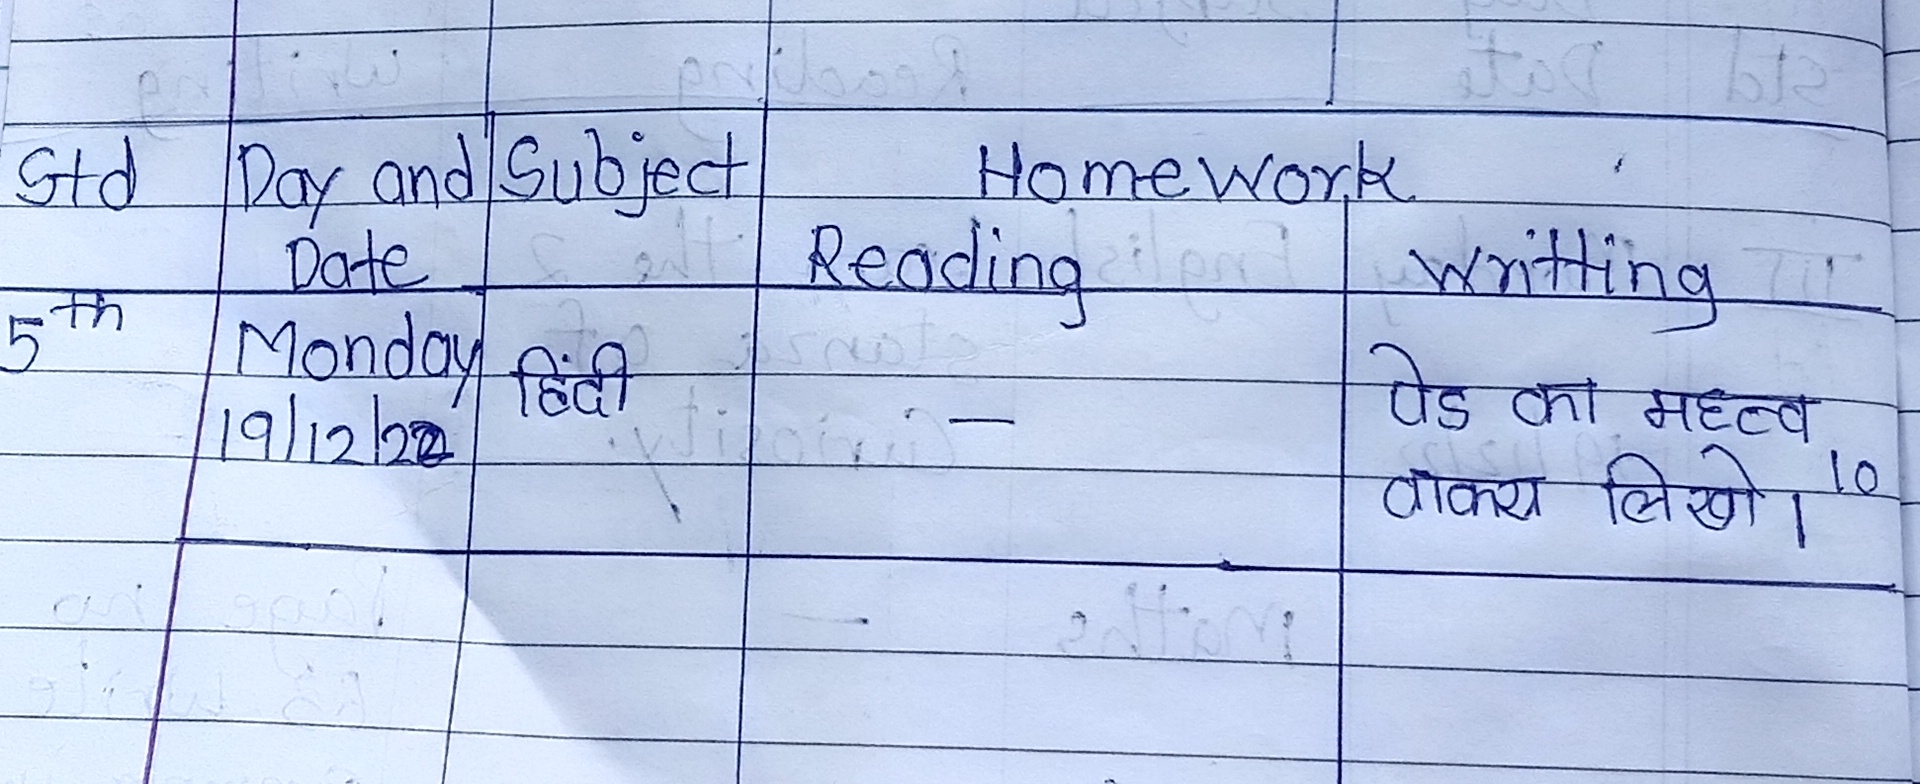 Std Day and Subject Homework
Date Reading Writting
5th Monday हिंदी — पेड का महत्व
19/12/22 10
वाक्य लिखो।